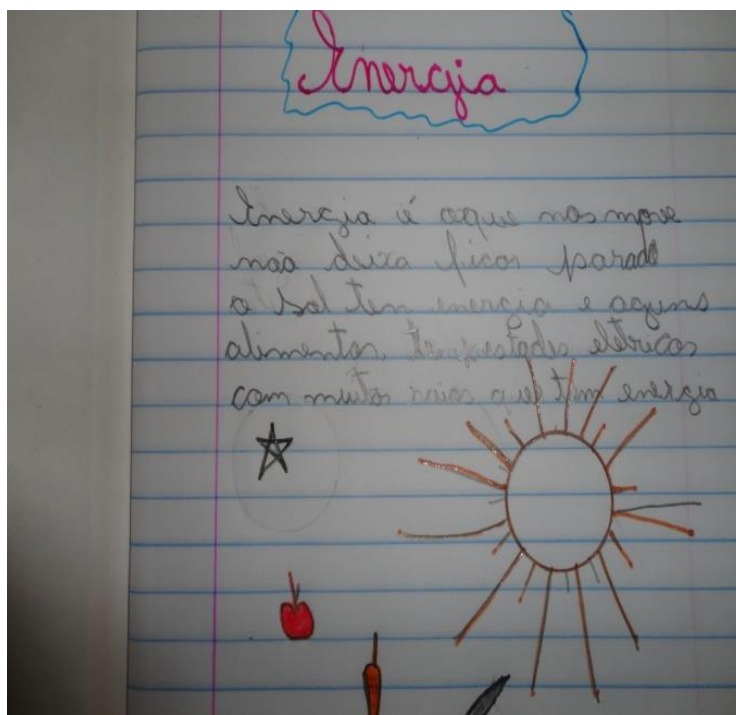 Energia
Energia é oque nos move
não deixa ficar parado
o sol tem energia e alguns
alimentos, tempestades elétricas
com muitos raios que tem energia